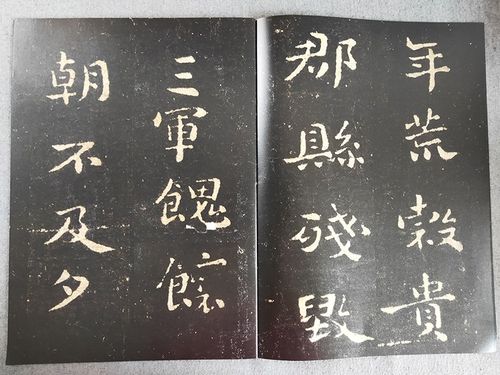 年荒穀貴
郡縣殘毀
三軍餽饟
朝不及夕